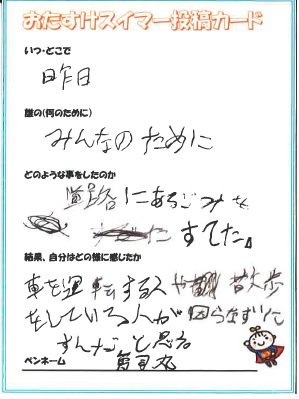 おたすけスイマー投稿カード
いつ・どこで
昨日
誰の(何のために)
みんなのために
どのような事をしたのか
道路にあるごみを
すてた。
結果、自分はどの様に感じたか
車を運転する人や散歩
をしている人が困らなずに
すんだと思う
ペンネーム